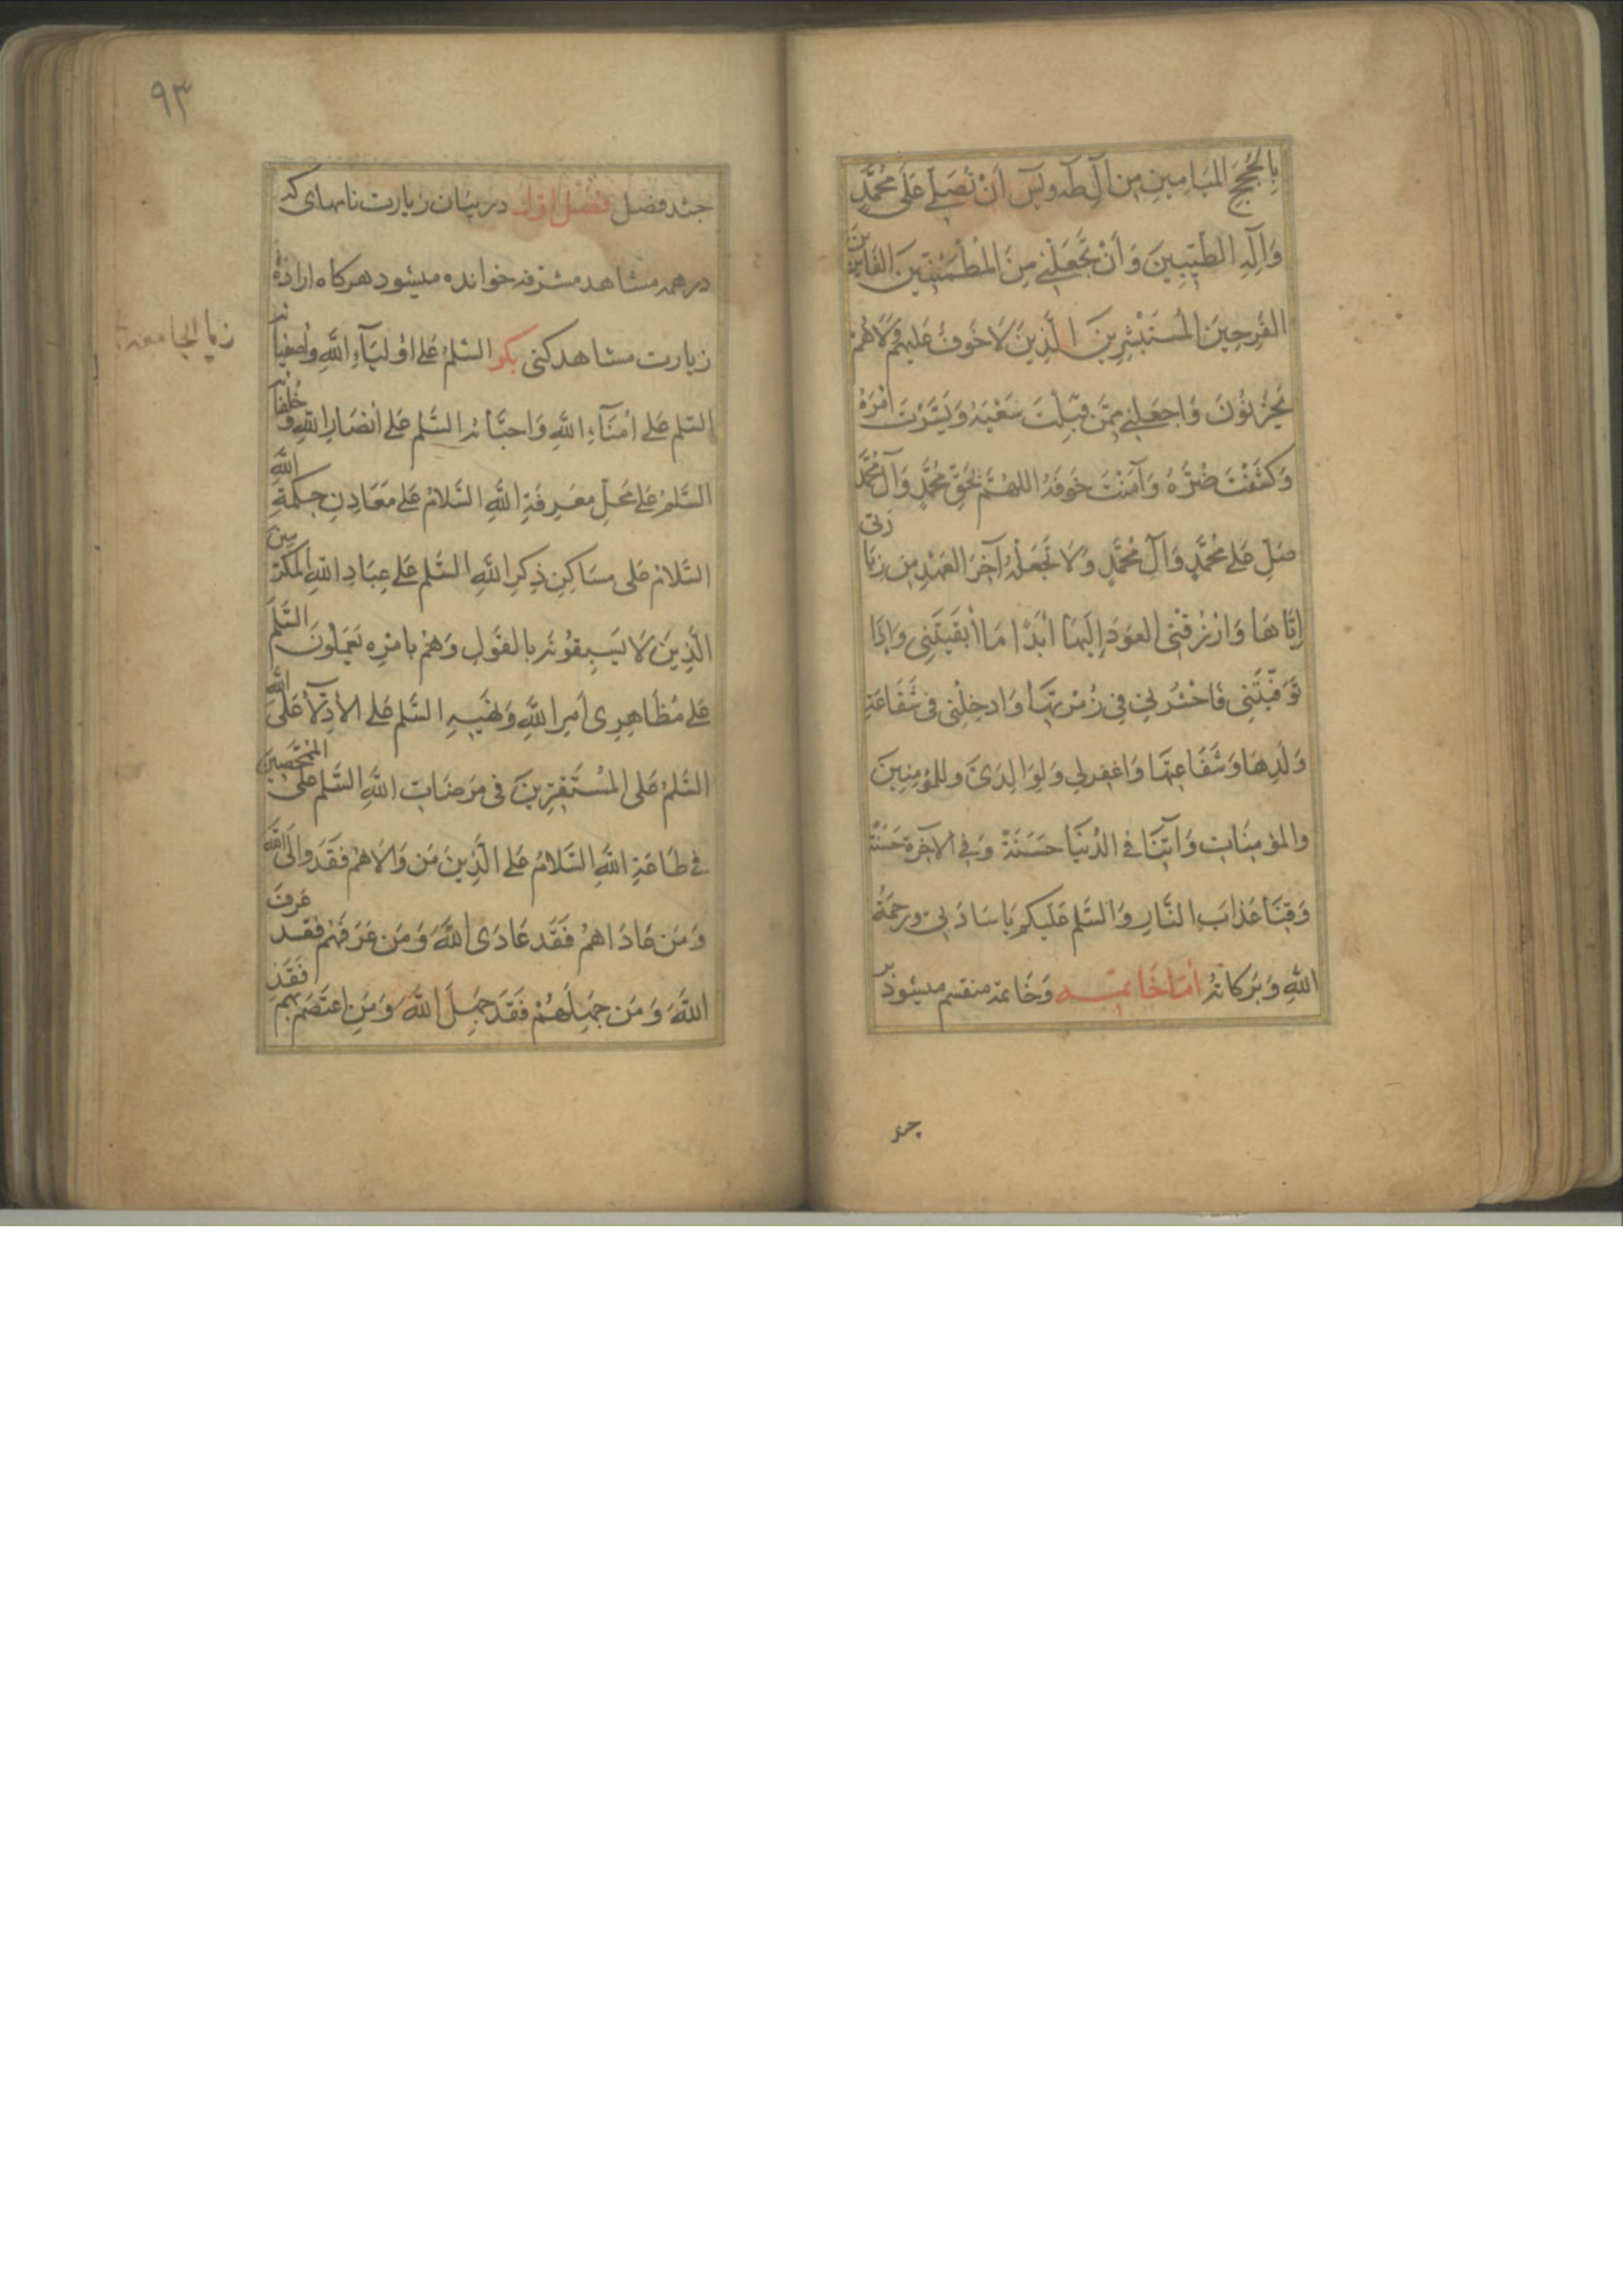 بِالحُجَجِ المَيَامِينِ مِن آلِ طه ويس أَنْ تُصَلِّيَ عَلى مُحَمَّدٍ
وَآلِهِ الطَّيِّبِينَ وَأَنْ تَجْعَلَنِي مِنَ المُطْمَئِنِّينَ الفَائزين
الفَرِحِينَ المُسْتَبْشِرِينَ الَّذِينَ لَا خَوفٌ عَلَيهِم وَلَا هُم
يَحْزَنُونَ وَاجعَلني مِمَّن قَبِلْتَ سَعْيَهُ وَيَسَّرْتَ أَمْرَهُ
وَكَشَفْتَ ضُرَّهُ وَآمَنْتَ خَوفَهُ اللهُمَّ بِحَقِّ مُحَمَّدٍ وَآلِ مُحَمَّدٍ
صَلِّ عَلى مُحَمَّدٍ وَآلِ مُحَمَّدٍ وَلَا تَجْعَلْهُ آخِرَ العَهْدِ مِن زِيَارتي
إِيَّاهَا وَارْزُقْنِي العَوْدَ إِلَيهَا أَبَدًا مَا أَبْقَيْتَنِي وَإِذَا
تَوَفَّيْتَنِي فَاحْشُرني فِي زُمْرَتِهَا وَادخِلْنِي فِي شَفَاعَةِ
وَلَدِهَا وَشَفَاعَتِهَا وَاغفِرلِي وَلِوَالِدَيَّ وللمُؤمِنِينَ
والمؤمِنَاتِ وَآتِنَا في الدُّنيَا حَسَنَةً وَفي الآخِرَةِ حَسَنَةً
وَقِنَا عَذَابَ النَّارِ وَالسَّلم عَلَيكُم يَا سَادَتِي ورحمَةُ
اللهِ وَبَرَكَاتُهُ أمّا خَاتمه وَخَاتمه منقسم ميشود بر
چند
٩٣
چند فصل فصل اول در بيان زيارت نامهاى كه
در همه مشاهد مشرفه خوانده ميشود هركاه ارادهٔ
زيارت مشاهد كنى بكو السَّلمُ عَلى اوْلِيَآءِ اللهِ وَأَصْفِيَائه
زيا الجامعة
السَّلم عَلى أُمَنَآءِ اللهِ وَاحِبَّائه السَّلم عَلى أَنْصَارِ اللهِ وَخُلَفَائه
السَّلمُ عَلى مَحَلِّ مَعرِفَةِ اللهِ السَّلامُ عَلى مَعَادِنِ حِكمَةِ اللهِ
السَّلامُ عَلى مسَاكِنِ ذِكرِ اللهِ السَّلم عَلى عِبَادِ اللهِ المُكرَمِينَ
الَّذِينَ لَا يَسبِقُونَهُ بالقَولِ وَهُم بِامْرِه يَعمَلُونَ السَّلم
عَلى مُظَاهِرِى أَمرِ اللهِ وَنَهيِهِ السَّلم عَلى الأَدِلَّآء عَلى الله
السَّلمُ عَلى المُسْتَقِرِّينَ فى مَرضَاتِ اللهِ السَّلم عَلى المُمَحَّصِينَ
فى طَاعَةِ اللهِ السَّلامُ عَلى الَّذِينَ مَن وَالَاهُم فَقَد وَالَى اللهَ
وَمَن عَادَاهُم فَقَد عَادَى اللهَ وَمَن عَرَفَهُم فَقد عَرفَ
اللهَ وَمَن جَهِلَهُمْ فَقَد جَهِلَ اللهَ وَمَنِ اعتَصَمَ بِهِم فَقَدِ